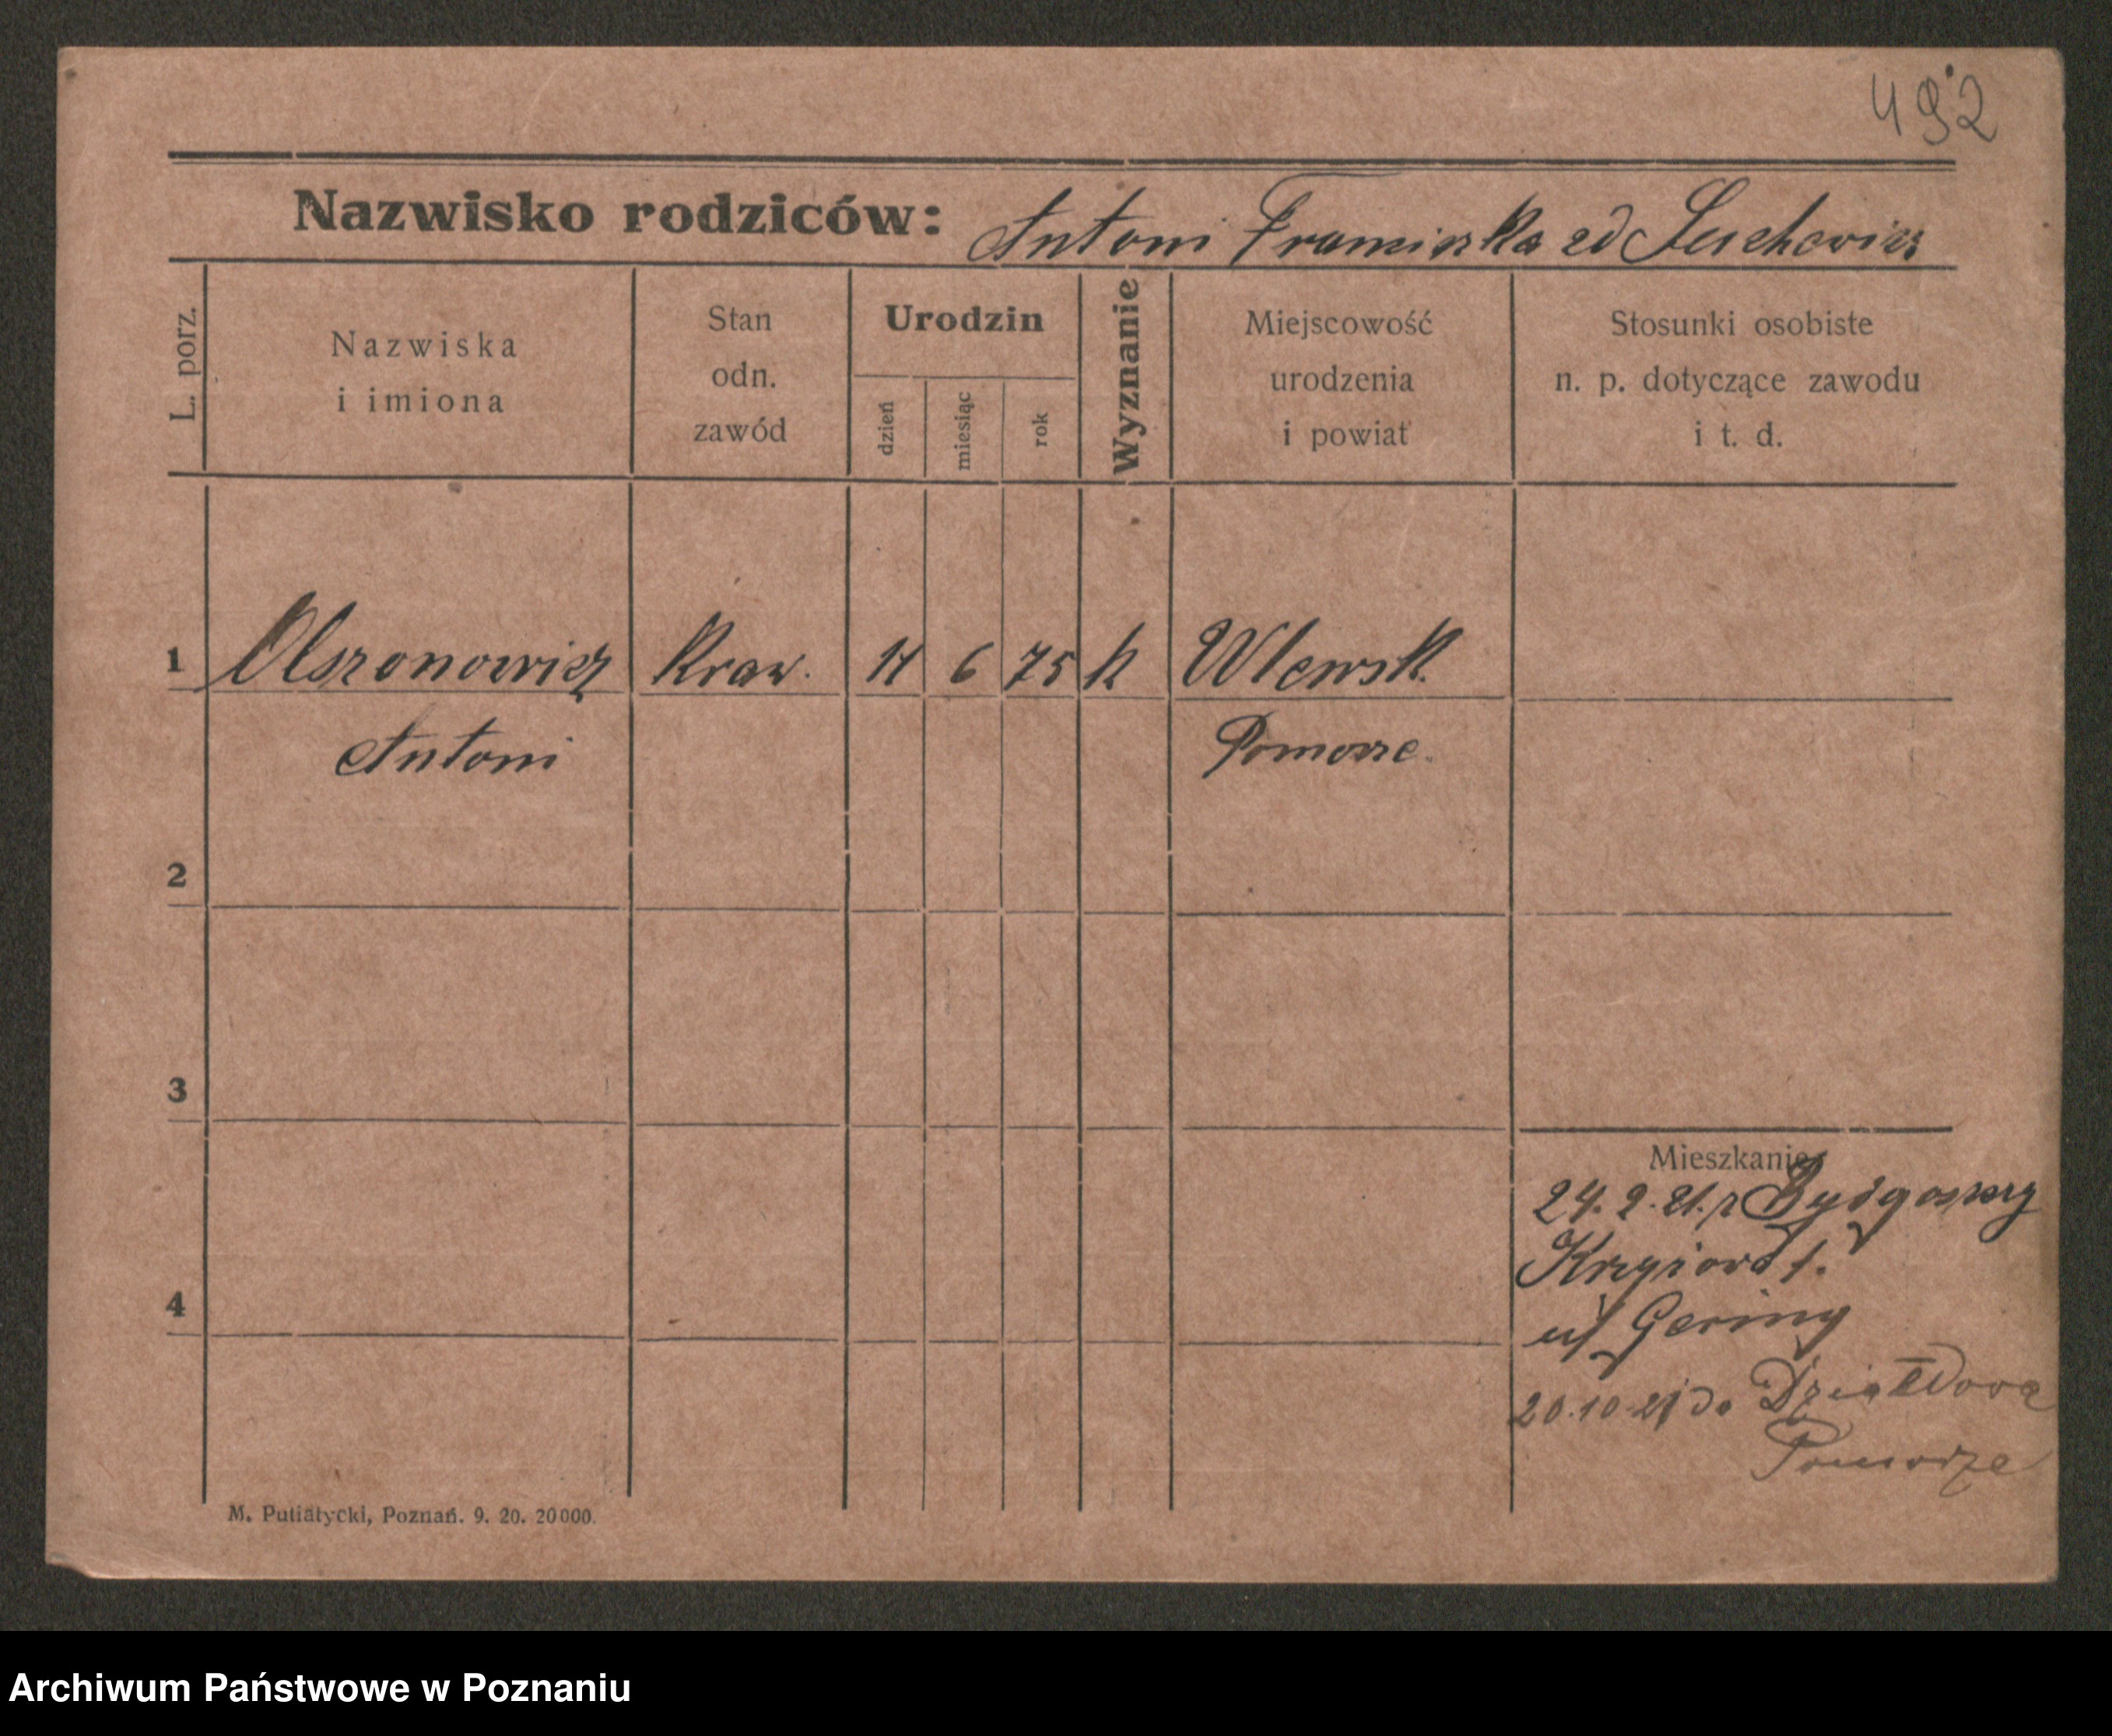 492
Nazwisko rodziców: Antoni Franciszka zd Suchowicz
L. porz.
Nazwiska
i imiona
Stan
odn.
zawód
Urodzin
dzień
miesiąc
rok
Wyznanie
Miejscowość
urodzenia
i powiat
Stosunki osobiste
n. p. dotyczące zawodu
i t. d.
1 Olszonowicz Kraw. 14 6 75 k Wlewsk.
Antoni Pomorze.
2
3
4
Mieszkanie
24. 2. 21. z Bydgoszczy
1.
u/ Gering
20.10.21 do Działdowa
Pomorze
M. Putiatycki, Poznań. 9. 20. 20000.
Archiwum Państwowe w Poznaniu